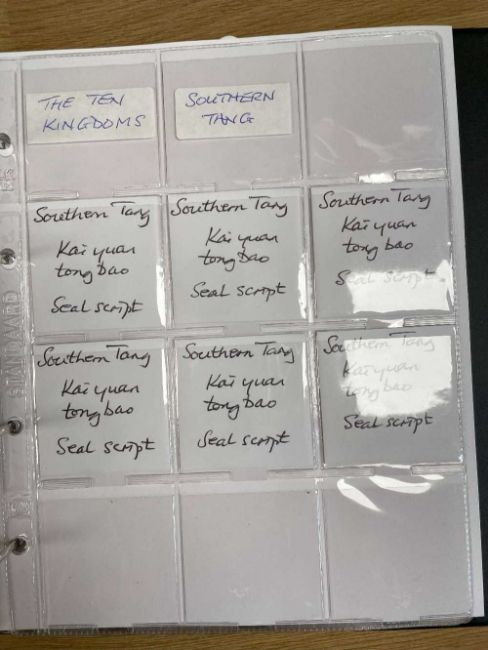 THE TEN
KINGDOMS
SOUTHERN
TANG
Southern Tang
Kai yuan
tong bao
Seal script
Southern Tang
Kai yuan
tong bao
Seal script
Southern Tang
Kai yuan
tong bao
Seal script
Southern Tang
Kai yuan
tong bao
Seal script
Southern Tang
Kai yuan
tong bao
Seal script
Southern Tang
Kai yuan
tong bao
Seal script
STANDAARD